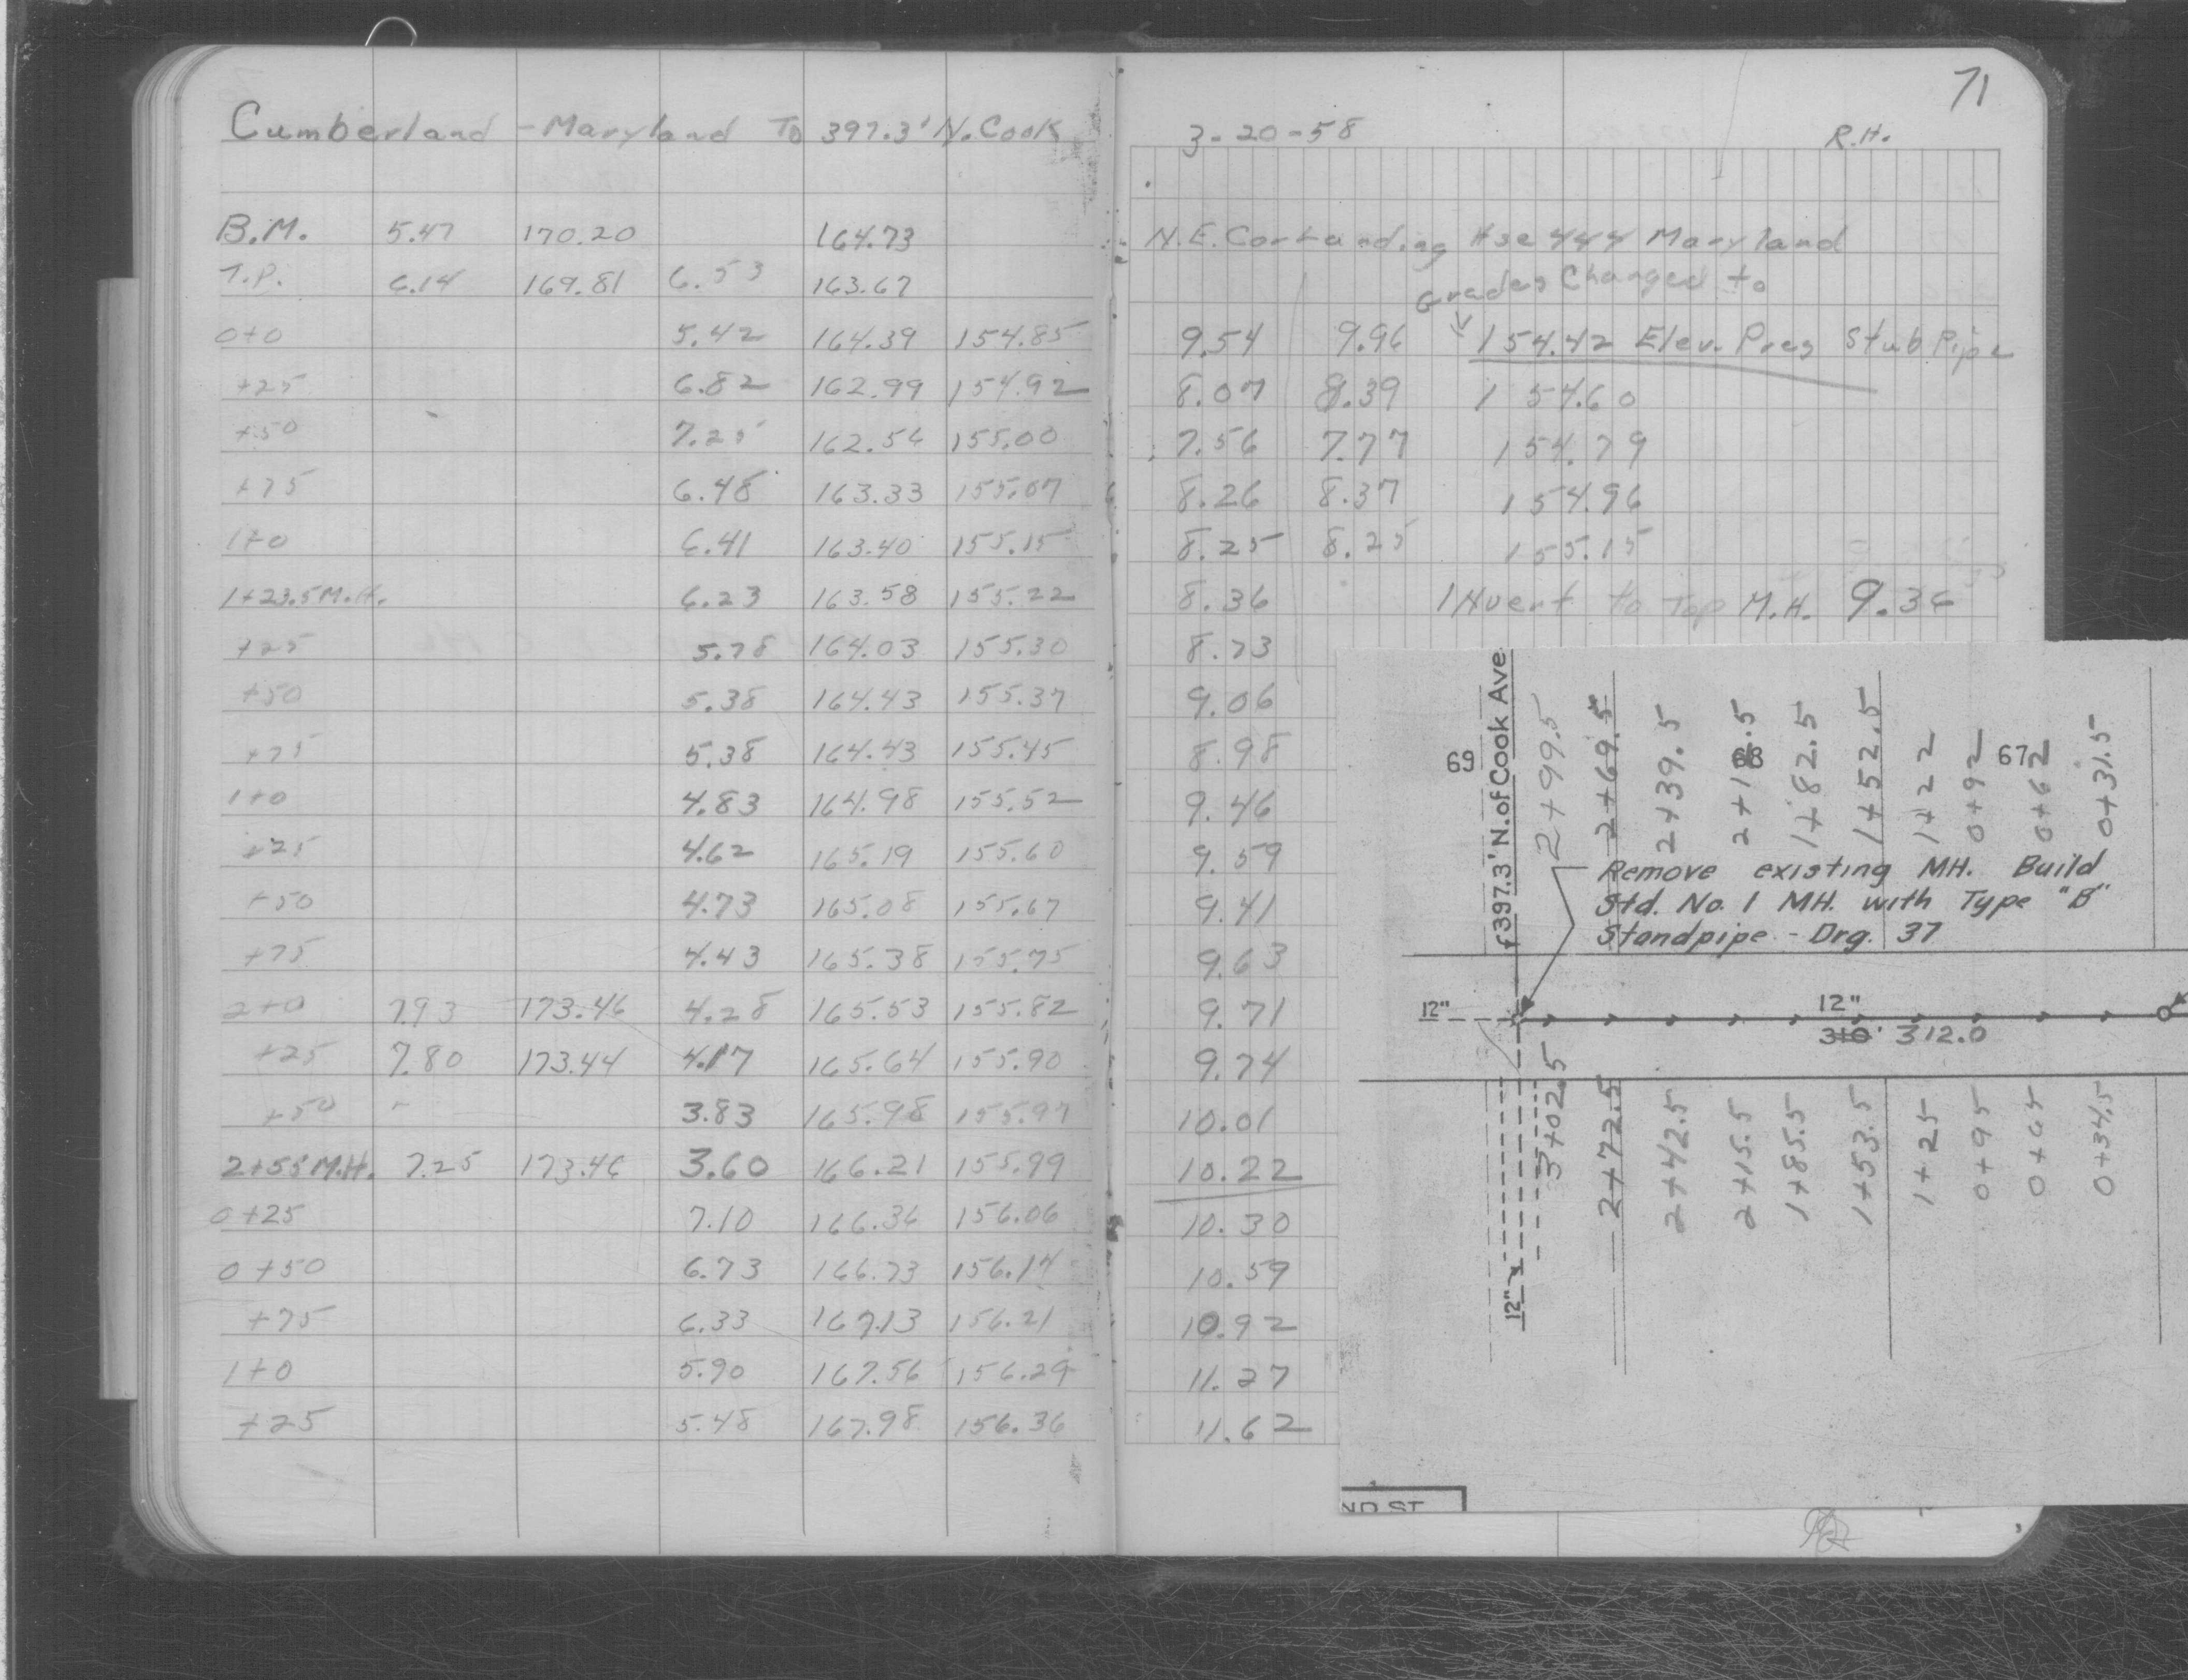 71
Cumberland - Maryland To 397.3' N. Cook 3-20-58 R.H.
B.M. 5.47 170.20 164.73 N.E. Cor Landing Hse 444 Maryland
T.P. 6.14 169.81 6.53 163.67 Grades Changed to
0+0 5.42 164.39 154.85 9.54 9.96 154.42 Elev. Pres Stub Pipe
+25 6.82 162.99 154.92 8.07 8.39 154.60
+50 7.25 162.56 155.00 7.56 7.77 154.79
+75 6.48 163.33 155.07 8.26 8.37 154.96
1+0 6.41 163.40 155.15 8.25 8.25 155.15
1+23.5 M.H. 6.23 163.58 155.22 8.36 INvert to Top M.H. 9.36
+25 5.78 164.03 155.30 8.73
+50 5.38 164.43 155.37 9.06
+75 5.38 164.43 155.45 8.98
1+0 4.83 164.98 155.52 9.46
+25 4.62 165.19 155.60 9.59
+50 4.73 165.08 155.67 9.41
+75 4.43 165.38 155.75 9.63
2+0 7.93 173.46 4.28 165.53 155.82 9.71
+25 7.80 173.44 4.17 165.64 155.90 9.74
+50 - - 3.83 165.98 155.97 10.01
2+55 M.H. 7.25 173.46 3.60 166.21 155.99 10.22
0+25 7.10 166.36 156.06 10.30
0+50 6.73 166.73 156.14 10.59
+75 6.33 167.13 156.21 10.92
1+0 5.90 167.56 156.29 11.27
+25 5.48 167.98 156.36 11.62
397.3' N. of Cook Ave
69 68 67
2+99.5
2+69.5
2+39.5
2+12.5
1+82.5
1+52.5
1+22
0+92
0+62
0+31.5
Remove existing MH. Build
Std. No. 1 MH. with Type "B"
Standpipe - Drg. 37
12" 12"
310' 312.0
3+02.5
2+72.5
2+42.5
2+15.5
1+85.5
1+53.5
1+25
0+95
0+65
0+34.5
12"
ND ST